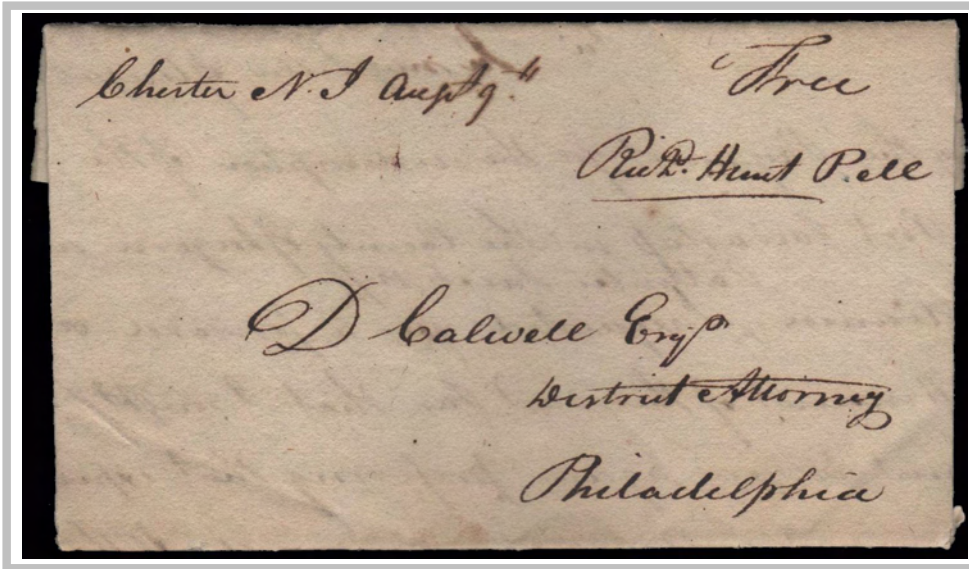 Chester N. J Augst 9.th
Free
Richd. Hunt Pell
D Calwell Esqr
District Attorney
Philadelphia